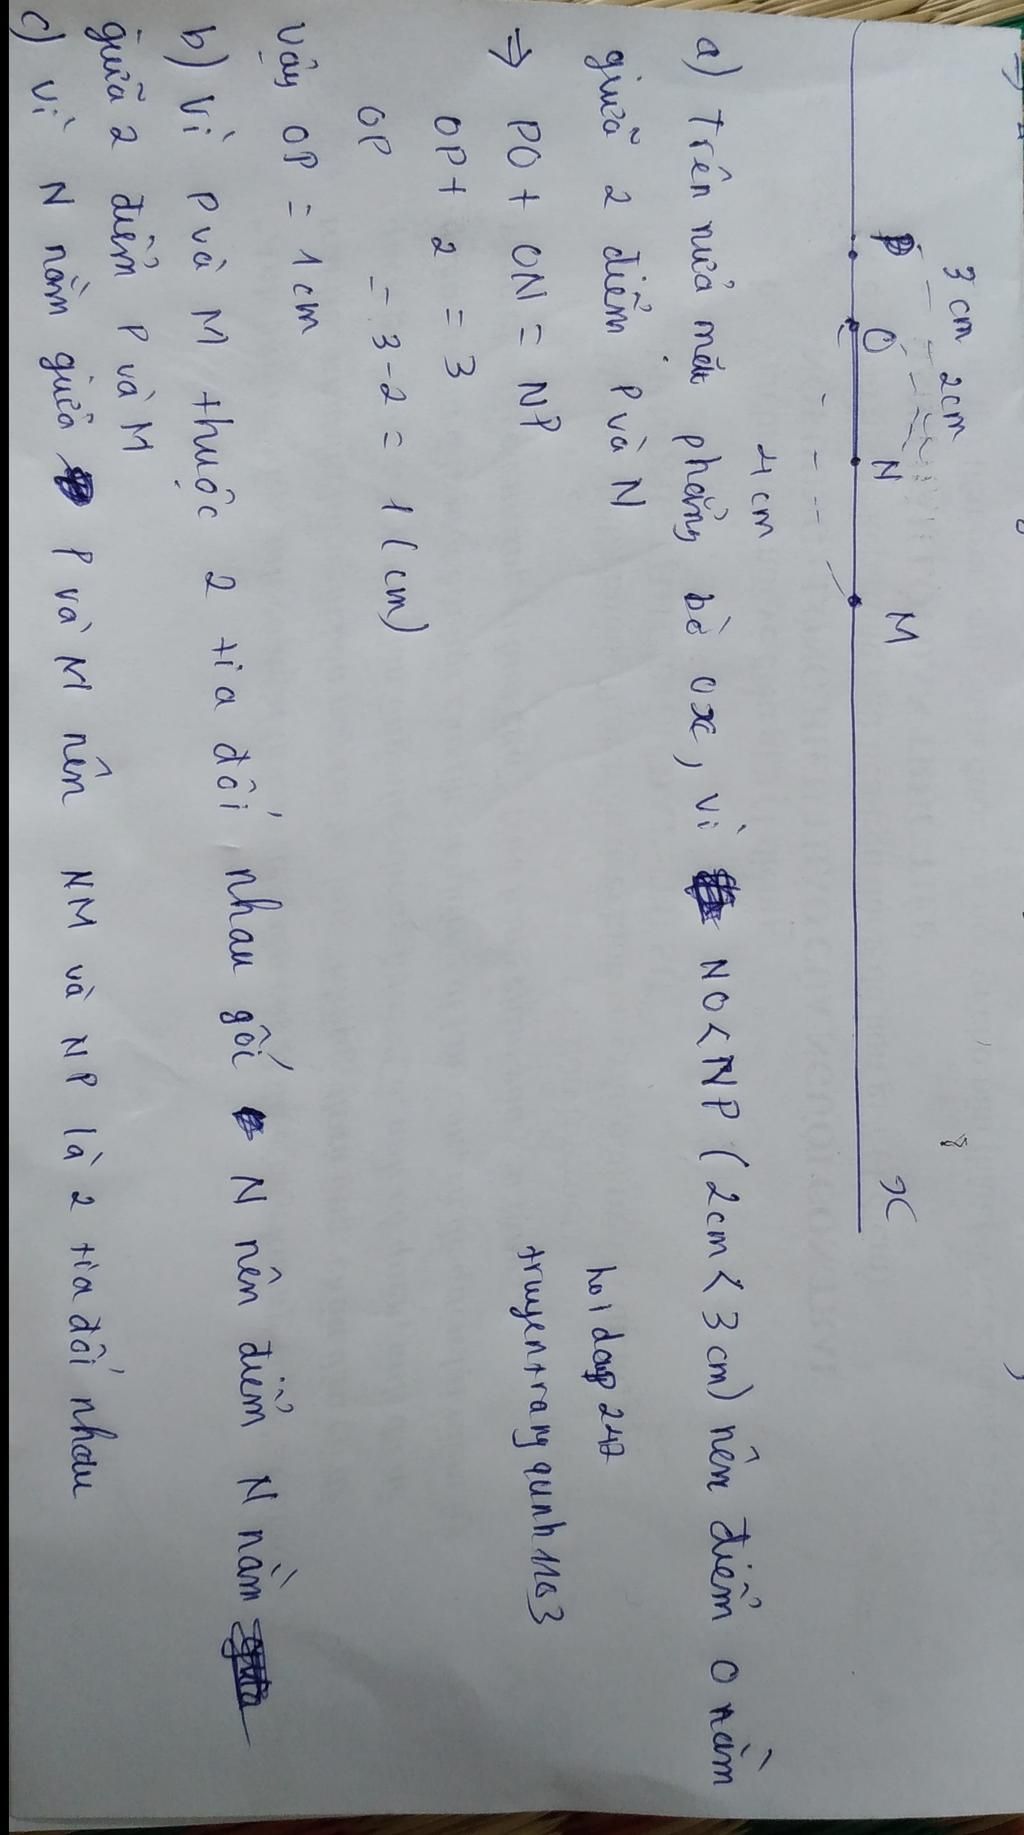 3 cm 2cm
P O N M x
4 cm
a) Trên nửa mặt phẳng bờ ox, vì NO < NP (2cm < 3 cm) nên điểm O nằm
giữa 2 điểm P và N
hoidap 247
⇒ PO + ON = NP
truyentrangquynh1163
OP + 2 = 3
OP = 3-2 = 1 (cm)
Vậy OP = 1cm
b) Vì P và M thuộc 2 tia đối nhau gốc N nên điểm N nằm
giữa 2 điểm P và M
c) Vì N nằm giữa P và M nên NM và NP là 2 tia đối nhau